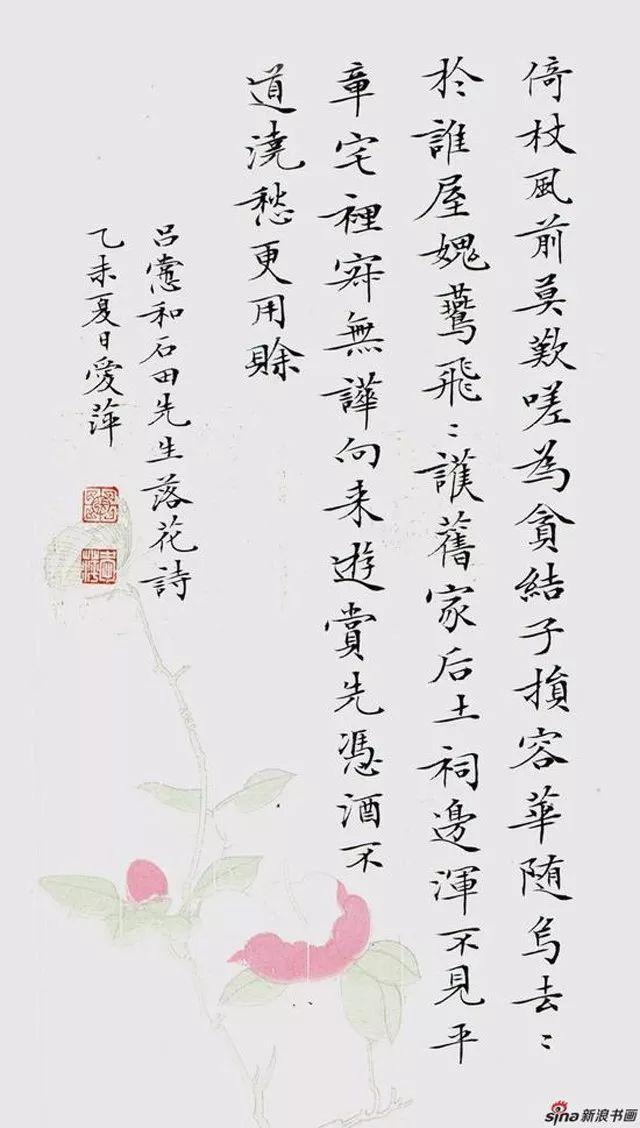 倚杖風前莫歎嗟為貪結子損容華随烏去〻
於誰屋媿鷰飛〻護舊家后土祠邊渾不見平
章宅裡寂無譁向来遊賞先憑酒不
道澆愁更用賒
呂㦂和石田先生落花詩
乙未夏日愛萍
sina新浪书画